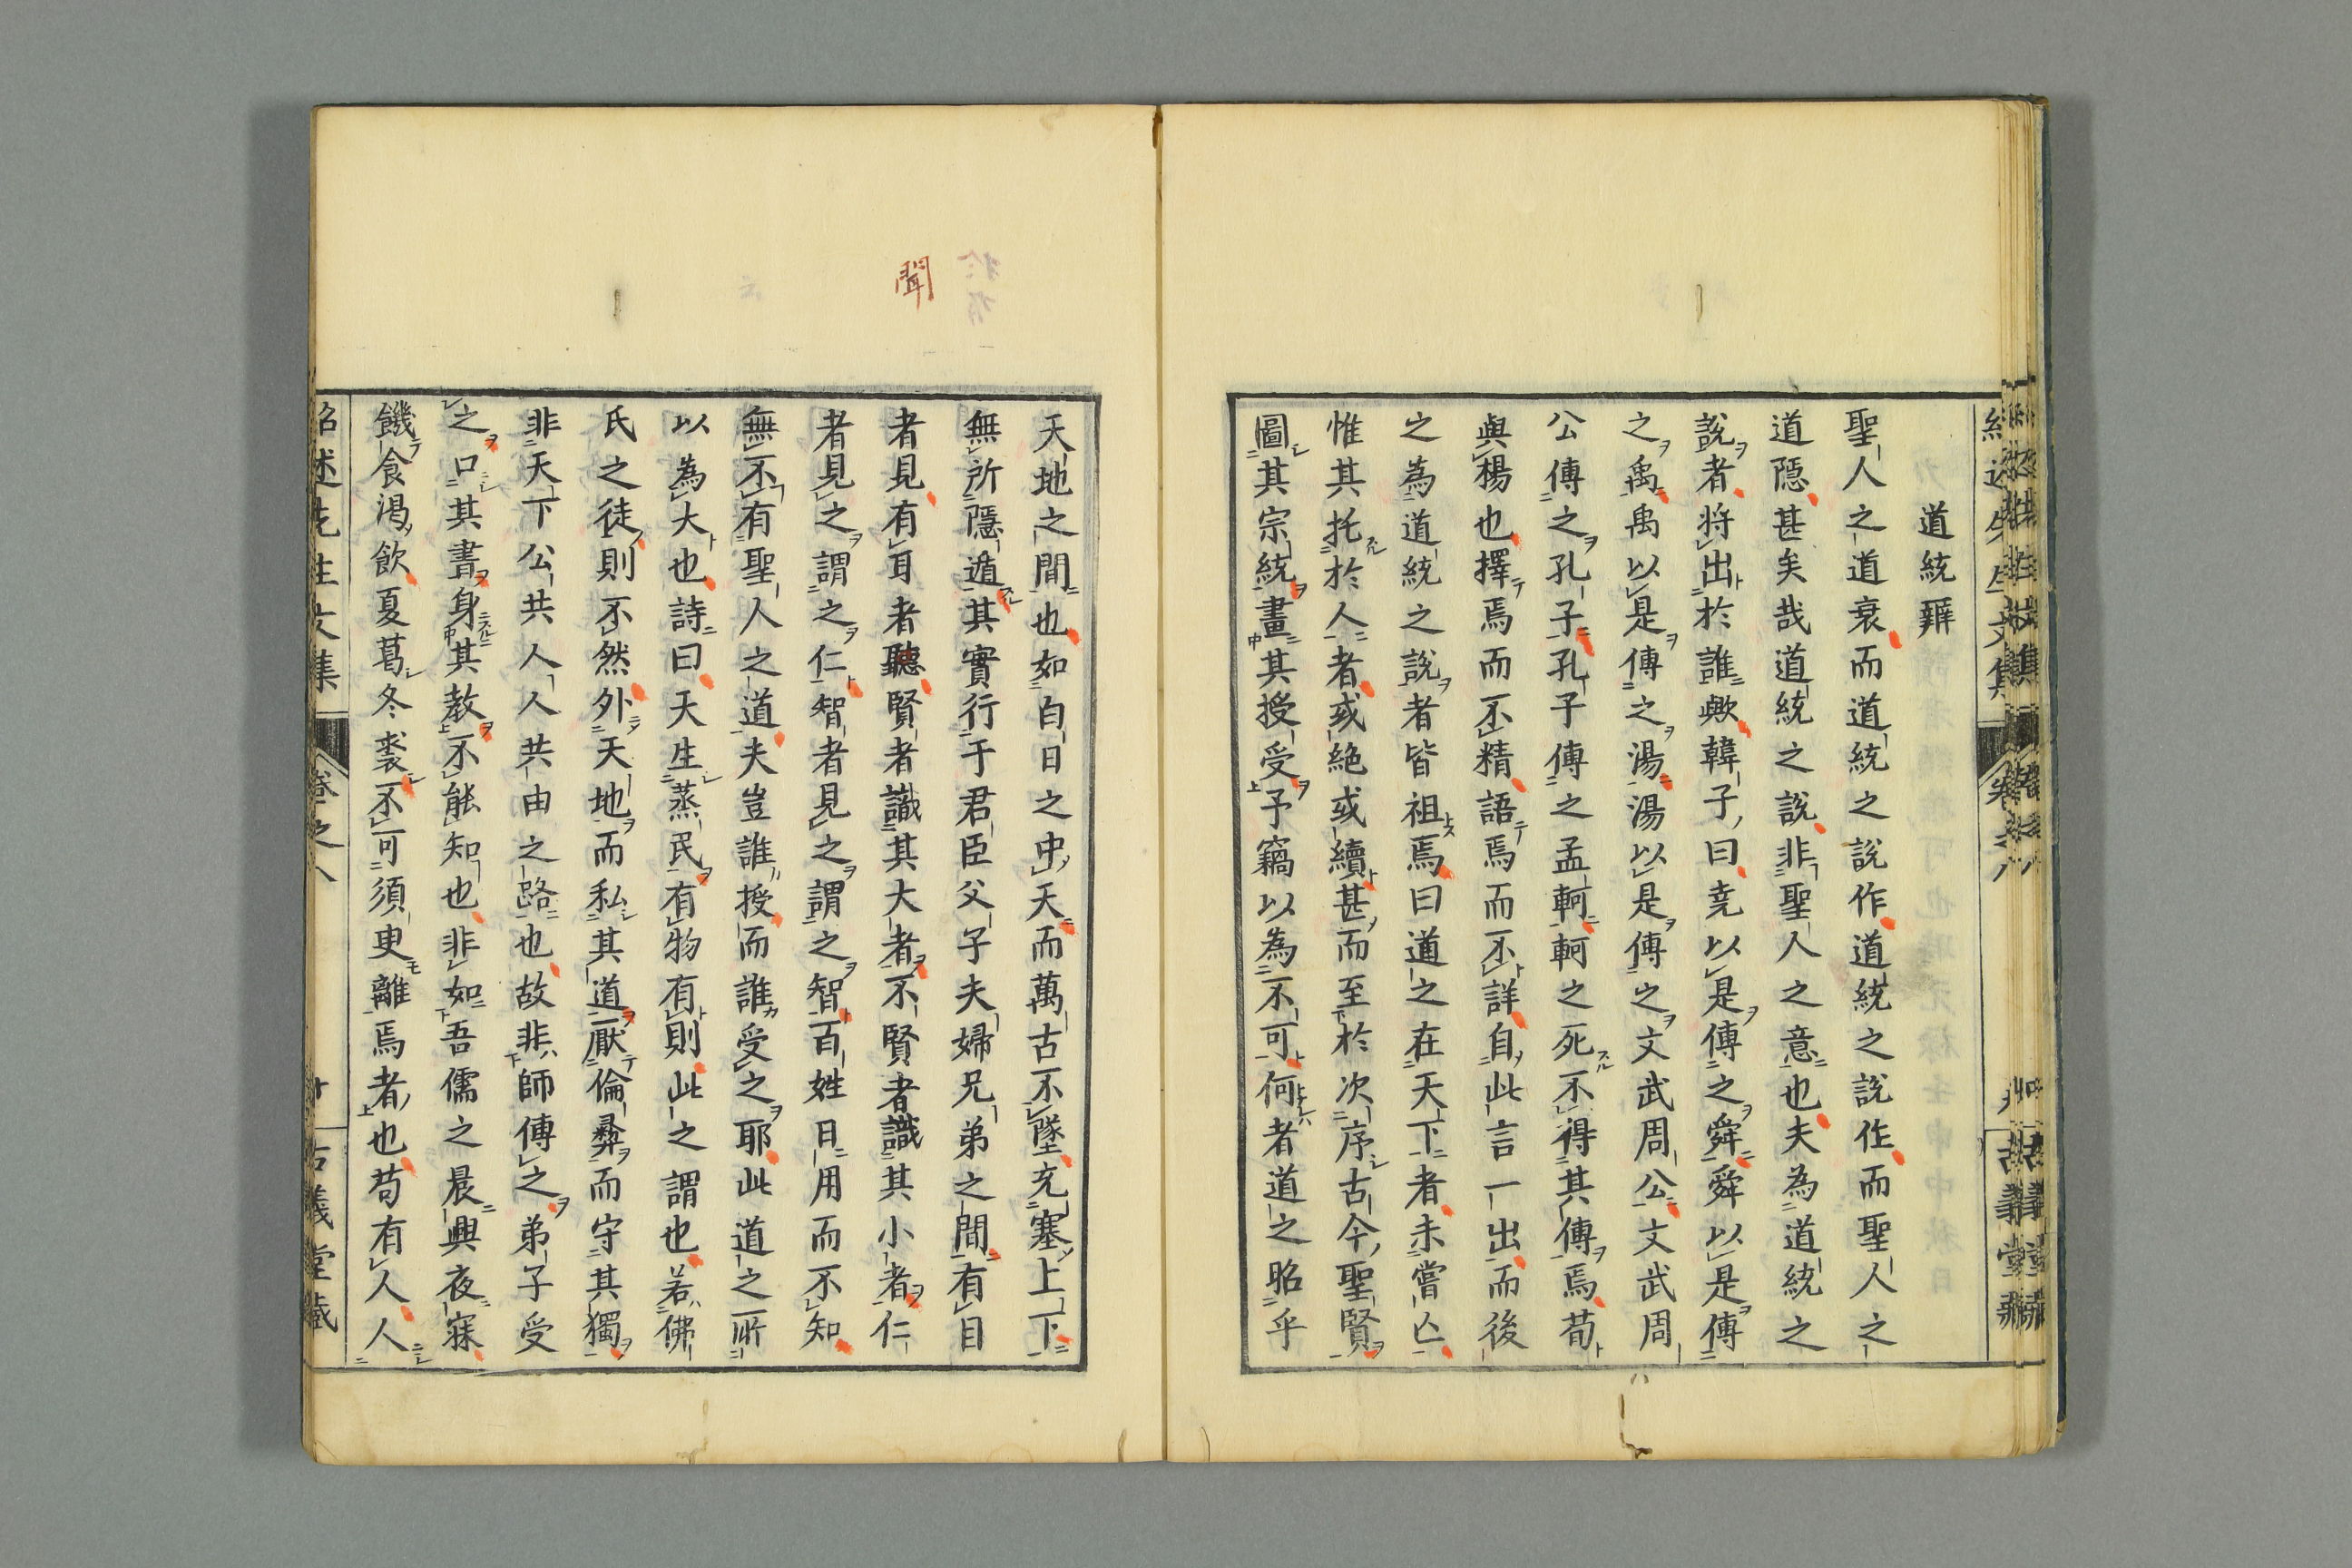 道統辨
聖人之道衰而道統之說作道統之說作而聖人之
道隱甚矣哉道統之說非聖人之意也夫為道統之
說者將出於誰歟韓子曰堯以是傳之舜舜以是傳
之禹禹以是傳之湯湯以是傳之文武周公文武周
公傳之孔子孔子傳之孟軻軻之死不得其傳焉荀
與楊也擇焉而不精語焉而不詳自此言一出而後
之為道統之說者皆祖焉曰道之在天下者未嘗亡
惟其托於人者或絕或續甚而至於次序古今聖賢
圖其宗統畫其授受予竊以為不可何者道之昭乎
天地之間也如白日之中天而萬古不墜充塞上下
無所隱遁其實行于君臣父子夫婦兄弟之間有目
者見有耳者聽賢者識其大者不賢者識其小者仁
者見之謂之仁智者見之謂之智百姓日用而不知
無不有聖人之道夫豈誰授而誰受之耶此道之所
以為大也詩曰天生蒸民有物有則此之謂也若佛
氏之徒則不然外天地而私其道厭倫彜而守其獨
非天下公共人人共由之路也故非師傳之弟子受
之口其書身其教不能知也非如吾儒之晨興夜寐
饑食渴飲夏葛冬裘不可須臾離焉者也苟有人人
聞
紹述先生文集
卷之八
古義堂藏